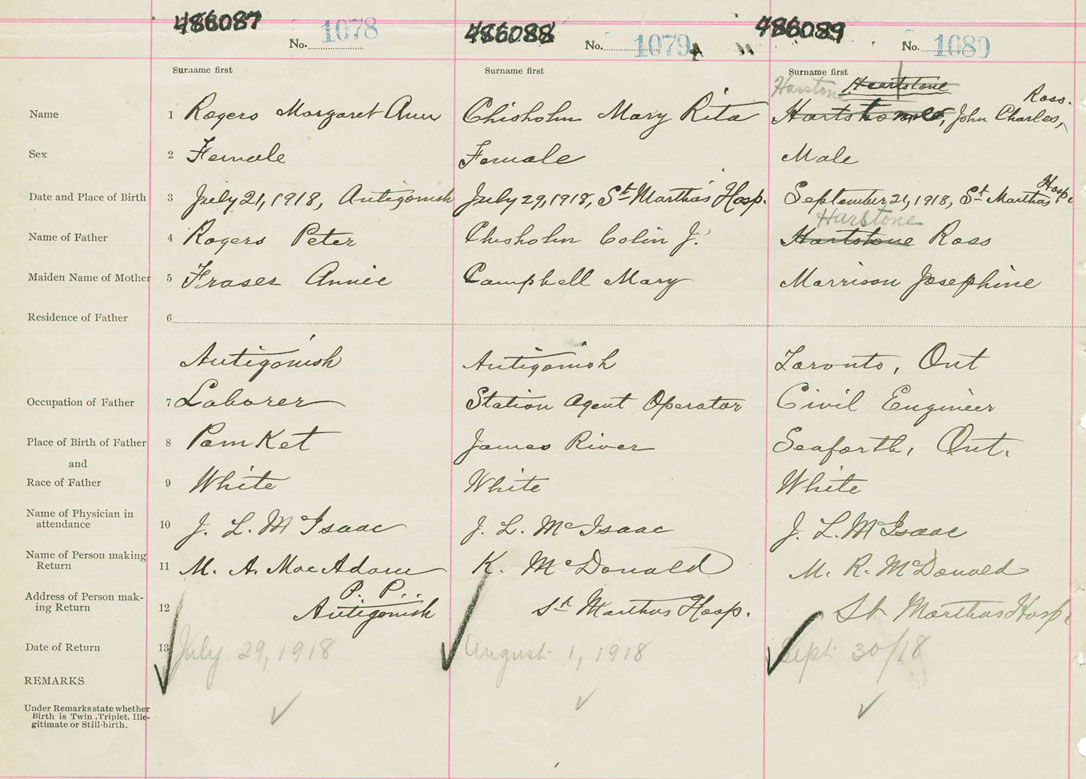 486087 486088 486089
No. 1078 No. 1079 No. 1080
Surname first Surname first Surname first
Harstone Heartstone
Ross.
Name 1 Rogers Margaret Ann Chisholm Mary Rita John Charles,
Sex 2 Female Female Male
Hosp.
Date and Place of Birth 3 July 21, 1918, Antigonish July 29, 1918, St Martha's Hosp. September 21, 1918, St Marthas
Harstone
Name of Father 4 Rogers Peter Chisholm Colin J. Hartstone Ross
Maiden Name of Mother 5 Fraser Annie Campbell Mary Morrison Josephine
Residence of Father 6
Antigonish Antigonish Toronto, Ont
Occupation of Father 7 Laborer Station Agent Operator Civil Engineer
Place of Birth of Father 8 PomKet James River Seaforth, Ont.
and
Race of Father 9 White White White
Name of Physician in
attendance 10 J. L. McIsaac J. L. McIsaac J. L. McIsaac
Name of Person making
Return 11 M. A. MacAdam K. McDonald M. R. McDonald
P. P.
Address of Person mak-
ing Return 12 Antigonish St Marthas Hosp. St Marthas Hosp.
Date of Return 13 July 29, 1918 August 1, 1918 Sept 30/18
REMARKS
Under Remarks state whether
Birth is Twin, Triplet, Ille-
gitimate or Still-birth.